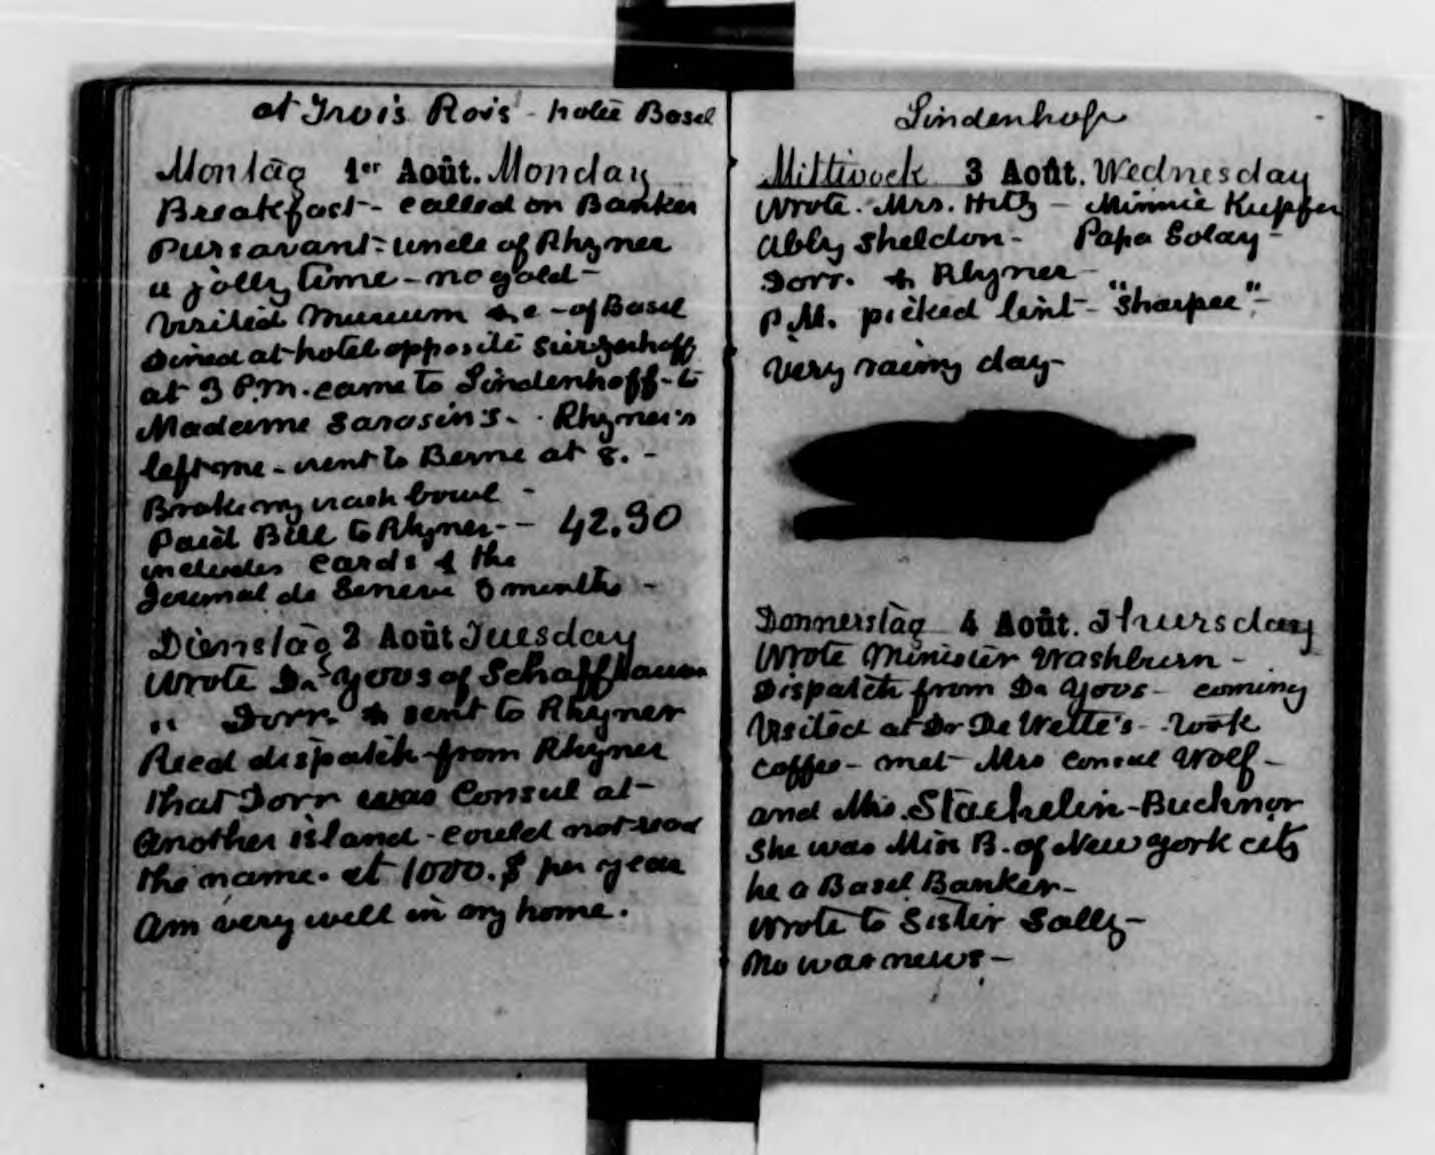 at Trois Rois - hotel Basel
Montag 1er Août. Monday
Breakfast - called on Banker
Pursavant - uncle of Rhyner
a jolly time - no gold -
Visited Museum &c - of Basel
Dined at hotel opposite
at 3 P.M. came to Lindenhoff - to
Madame Sarasin's - Rhyner's
left me - went to Berne at 8. -
Broke my wash bowl -
Paid Bill to Rhyner - - 42.90
includes cards & the
Journal de Geneve 3 months -
Dienstag 2 Août Tuesday
Wrote Dr Yoos of Schaffhausen
" Dorr. & sent to Rhyner
Recd dispatch from Rhyner
that Dorr was Consul at -
Another island - could not read
the name. at 1000. $ per year
Am very well in my home.
Lindenhof
Mittwock 3 Août. Wednesday
Wrote. Mrs. Hitz - Minnie Kupfer
Abby Sheldon - Papa Golay -
Dorr. & Rhyner -
P.M. picked lint - "Sharpee" -
Very rainy day -
Donnerstag 4 Août. Thursday
Wrote Minister Washburn -
Dispatch from Dr Yoos - coming
Visited at Dr De Wette's - took
coffee - met Mrs Consul Wolf -
and Mrs. Staehelin - Bucknor
She was Miss B. of New York city
he a Basel Banker -
Wrote to Sister Sally -
No war news -